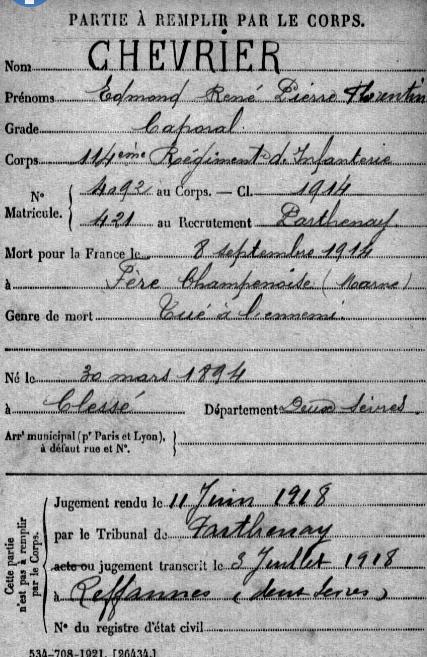 PARTIE À REMPLIR PAR LE CORPS.
Nom CHEVRIER
Prénoms Edmond René Pierre Florentin
Grade Caporal.
Corps 114ème Régiment d'Infanterie
N° Matricule. { 4292 au Corps. — Cl. 1914
421 au Recrutement Parthenay
Mort pour la France le 8 septembre 1914
à Fère Champenoise (Marne)
Genre de mort Tué à l'ennemi.
Né le 30 mars 1894
à Clessé Département Deux Sèvres.
Arrt municipal (pr Paris et Lyon), à défaut rue et N°. }
Cette partie n'est pas à remplir par le Corps.
Jugement rendu le 11 Juin 1918
par le Tribunal de Parthenay
acte ou jugement transcrit le 3 Juillet 1918
à Reffannes (deux Sevres)
N° du registre d'état civil
534-708-1921. [26434.]